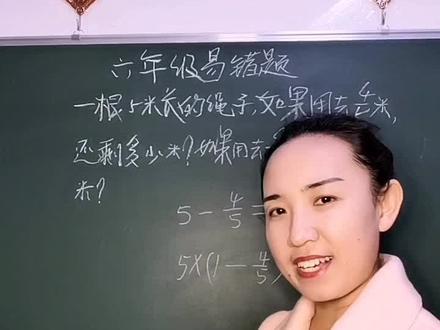 六年级易错题
一根5米长的绳子,如果用去4/5米,
还剩多少米?如果用去
米?
5-4/5=
5×(1-4/5)